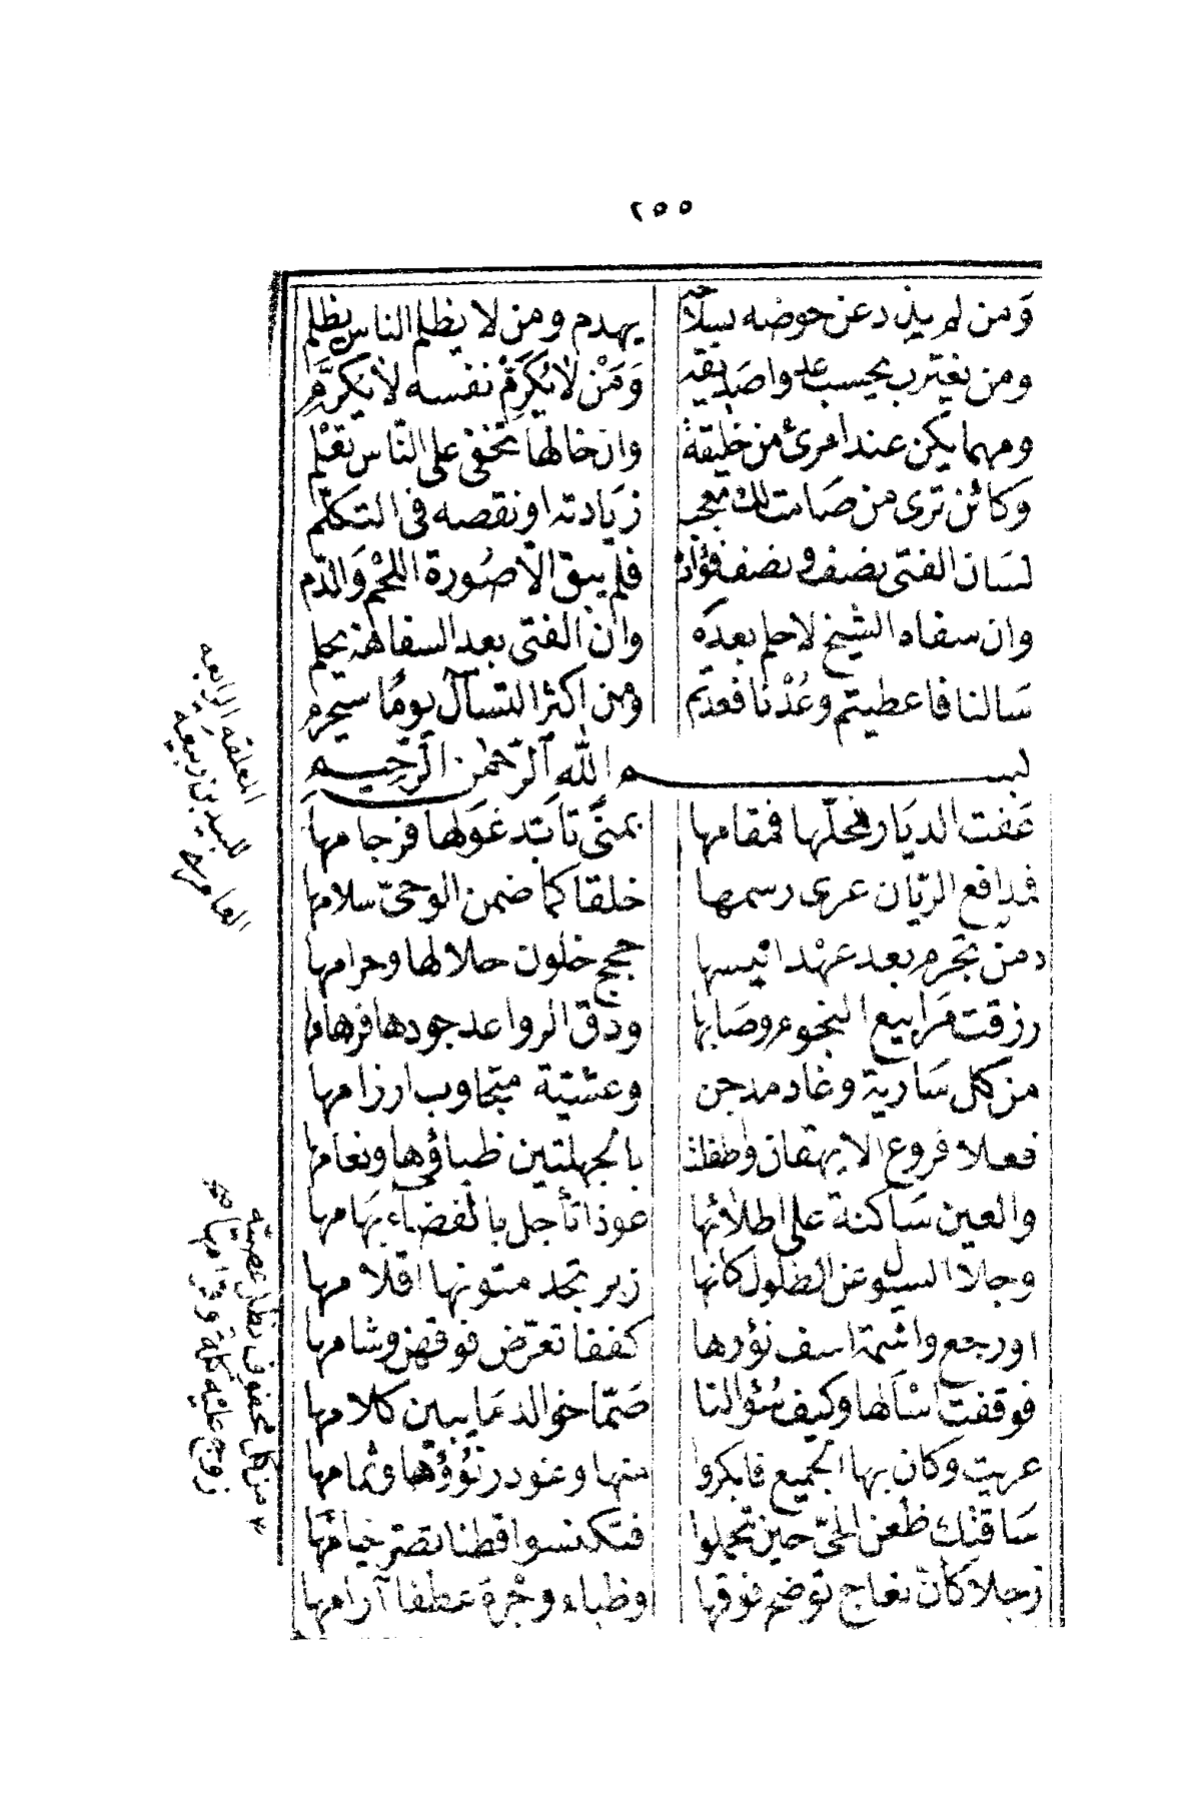 ٢٥٥
وَمن لم يذد عن حوضه بسلاحه يهدم ومن لا يظلم الناس يظلم
ومن يغترب يحسب عدواصديقه وَمَنْ لا يُكَرِمْ نفسه لا يكرَّم
ومهما يكن عند امرئ من خليقة وان خالها تخفى على النّاس تعْلم
وكائن ترى من صَامت لك معجب زيَادته او نقصه فى التكلّم
لسَان الفتى نصف ونصف فؤاده فلم يبق الّا صُورة اللحْم وَالدّم
وان سفاه الشيخ لا حلم بعدَه وان الفتى بعد السفاهة يحلم
سَالنا فاعطيتم وعُدْنا فعدتم ومن اكثر التسآل يومًا سيحرم
بسم الله الرّحمٰن الرّحيم
عَفت الديَار محَلّها فمقامها بمنًى تأبّد غَولها فرجامها
فمدافع الريّان عرى رسمها خلقا كما ضمن الوحىّ سلامها
دمن تجرم بعد عهْد انيسها حجج خلون حلالها وحرامها
رزقت مَرابيع النجوم وصَابها ودق الرواعد جودها فرهامها
من كل سَارية وغاد مدجن وعشيّة متجاوب ارزامها
فعلا فروع الايهقان واطفلت بالجهلتين ظباؤها ونعامها
والعين سَاكنة على اطلائها عوذا تأجل بالفضاء بهَامها
وجلا السيول عن الطلول كانها زبر تجد متونها اقلامها
او رجع واشمة اسف نؤرها كففا تعرّض فوقهن وشامها
فوقفت اسْألها وكيف سُؤالنا صَمّا خوالد مَا يبين كلامها
عريت وكان بها الجميع فابكروا منها وغودر نُؤْؤُها وثمامها
سَاقتك ظعن الحىّ حين تحملوا فتكنسوا قطنا تصرّ خيامُها
زجلا كأنّ نعاج توضح فوقها وظباء وجْرة عطفا آرامها
المعلقه الرابعه
للبيد بن ربيعه
العامرى
من كل محفوف يظل عصيّه
زوج عليه كلة وقرامها صح